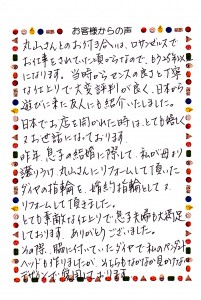 お客様からの声
丸山さんとのお付き合いは、ロサンゼルスで
お仕事をされていた頃からなので、もう25年以上
になります。当時からセンスの良さと丁寧
な仕上りで大変評判が良く、日本から
遊びに来た友人にも紹介いたしました。
日本でお店を開かれた時は、とても嬉しく
お世話になっております。
昨年、息子の結婚に際して、私が母より
譲りうけ、丸山さんにリフォームして頂いた
ダイヤの指輪を、婚約指輪として
リフォームして頂きました。
とても素敵な仕上りで、息子夫婦も大満足
しております。ありがとうございました。
その際、脇に付いていたダイヤで私のペンダント
ヘッドも作りましたが、そちらもなかなか見かけない
デザインで愛用しております。